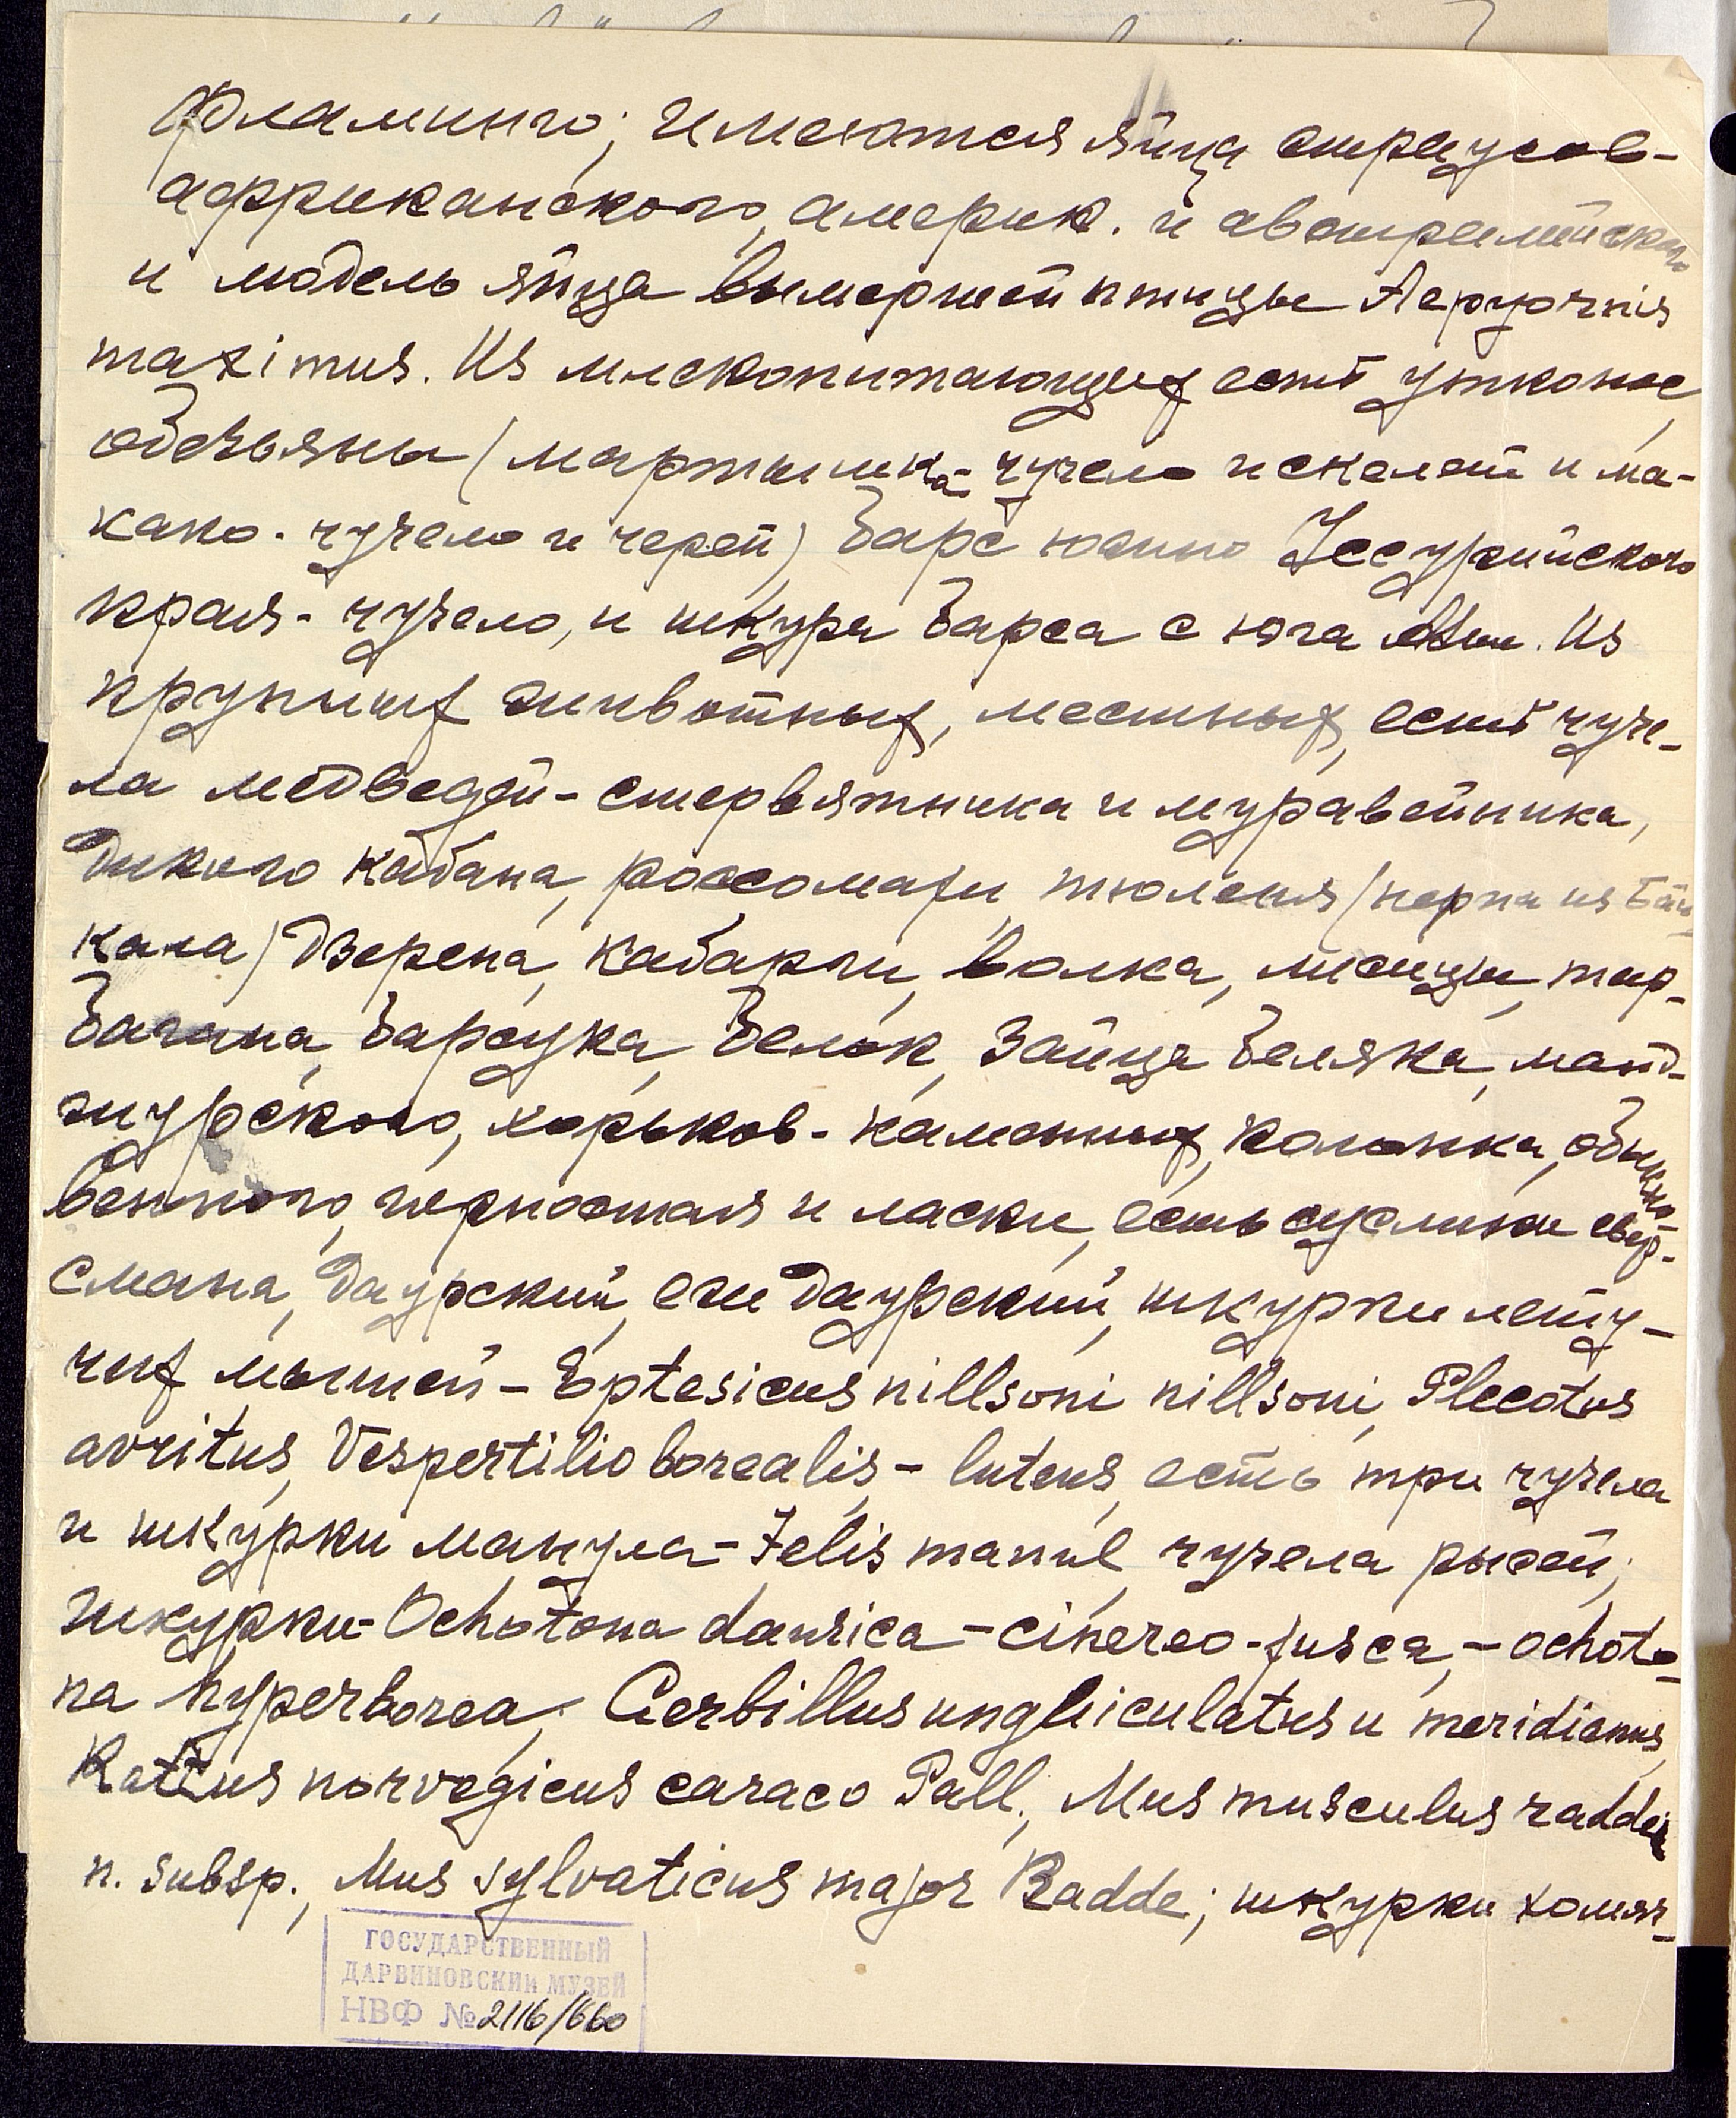 фламинго; имеются яйца страусов-
аффриканского, америк. и австралийского
и модель яйца вымершей птицы Aepyornis
maximus. Из млекопитающих есть утконос,
обезьяны (мартышка- чучело и скелет и ма-
како- чучело и череп) барс южно Уссурийского
края- чучело, и шкура барса с юга
Из
крупных животных, местных, есть чуче-
ла медведей- стервятника и муравейника,
дикого кабана, россомахи тюленя (нерпа из Бай
кала) дзерена, кабарги, волка, лисицы, тар-
багана, барсука, белок, зайца беляка, манд-
журского, хорьков- каменных, колонка, обыкно-
венного, горностая и ласки, есть суслики евер-
смана, даурский, ежи даурский, шкурки лету-
чих мышей- Eptesicus nillsoni nillsoni, Plecotus
avritus, Vespertilio borealis- luteus, есть три чучела
и шкурки манула- Felis manul, чучела рысей;
шкурки- Ochotona daurica- cinereo-fusca,- ochoto-
na hyperborea; Gerbillus unguiculatus и meridianus,
Rattus norvegicus caraco Pall., Mus musculus raddei
n. subsp., Mus sylvaticus major Radde; шкурки хомяч-
ГОСУДАРСТВЕННЫЙ
ДАРВИНОВСКИЙ МУЗЕЙ
НВФ № 2116/660